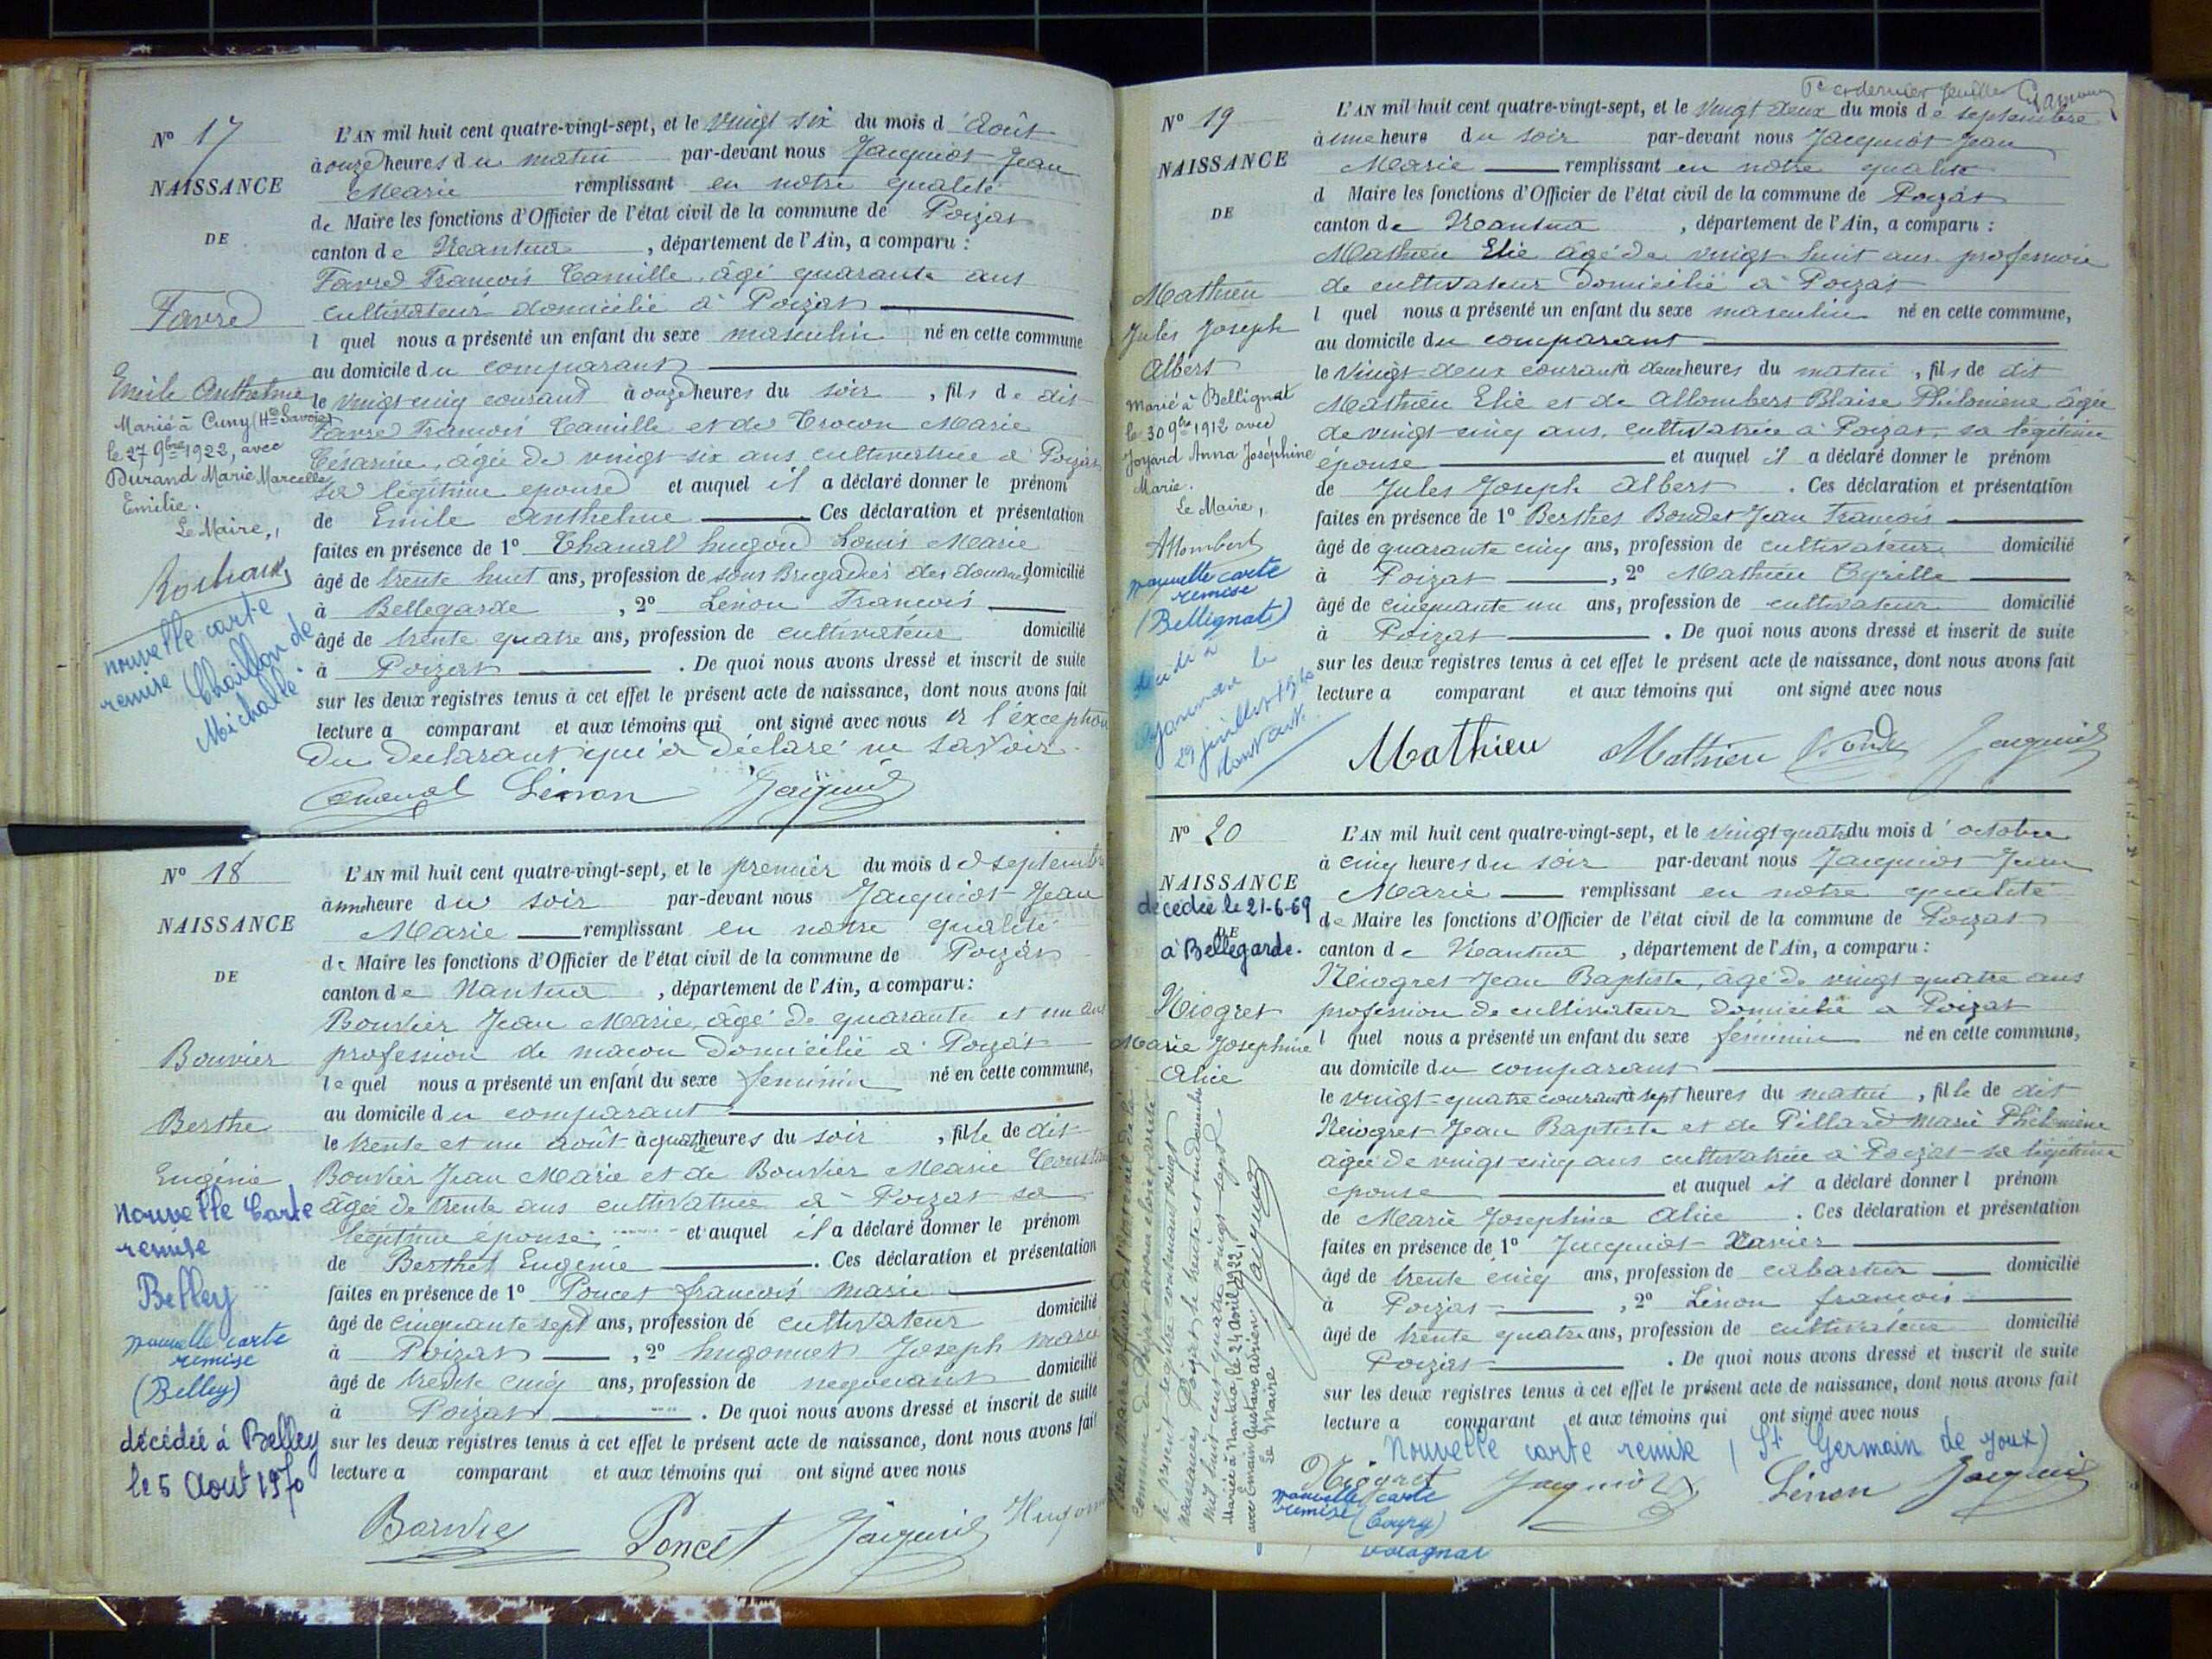 N° 17
NAISSANCE
DE
Favre
Emile Anthelme
Marié à Cuny (Hte Savoie)
le 27 9bre 1922, avec
Durand Marie Marcelle
Emilie.
Le Maire,
nouvelle carte
remise (Chatillon de
Michaille
L'AN mil huit cent quatre-vingt-sept, et le vingt six du mois d'Août
à onze heures du matin par-devant nous Jacquiot Jean
Marie remplissant en notre qualité
de Maire les fonctions d'Officier de l'état civil de la commune de Poizat
canton de Nantua, département de l'Ain, a comparu :
Favre François Camille, âgé quarante ans
cultivateur domicilié à Poizat
l quel nous a présenté un enfant du sexe masculin né en cette commune
au domicile du comparant
le vingt cinq courant à onze heures du soir, fils de dit
Favre François Camille et de Crocon Marie
Césarine, agée de vingt-six ans cultivatrice à Poizat
sa légitime epouse et auquel il a déclaré donner le prénom
de Emile Anthelme . Ces déclaration et présentation
faites en présence de 1° Chanal hugon Louis Marie
âgé de trente huit ans, profession de sous Brigadier des douanes domicilié
à Bellegarde, 2° Lénon François
âgé de trente quatre ans, profession de cultivateur domicilié
à Poizat . De quoi nous avons dressé et inscrit de suite
sur les deux registres tenus à cet effet le présent acte de naissance, dont nous avons fait
lecture a comparant et aux témoins qui ont signé avec nous à l'exception
du declarant qui a déclaré ne savoir.
Chanal Lénon Jacquiot
N° 18
NAISSANCE
DE
Bouvier
Berthe
Eugénie
Nouvelle Carte
remise
Belley
nouvelle carte
remise
(Belley)
décédée à Belley
le 5 Aout 1970
L'AN mil huit cent quatre-vingt-sept, et le premier du mois d e septembre
à une heure du soir par-devant nous Jacquiot Jean
Marie remplissant en notre qualité
de Maire les fonctions d'Officier de l'état civil de la commune de Poizat
canton de Nantua, département de l'Ain, a comparu :
Bouvier Jean Marie, âgé de quarante et un ans
profession de macon domicilié à Poizat
le quel nous a présenté un enfant du sexe feminin né en cette commune,
au domicile du comparant
le trente et un août à quatre heures du soir, fille de dit
Bouvier Jean Marie et de Bouvier Marie
âgée de trente ans cultivatrice à Poizat sa
légitime épouse et auquel il a déclaré donner le prénom
de Berthe Eugénie . Ces déclaration et présentation
faites en présence de 1° Poncet françois marie
âgé de cinquante sept ans, profession de cultivateur domicilié
à Poizat, 2° hugonnet Joseph marie
âgé de trente cinq ans, profession de negociant domicilié
à Poizat . De quoi nous avons dressé et inscrit de suite
sur les deux registres tenus à cet effet le présent acte de naissance, dont nous avons fait
lecture a comparant et aux témoins qui ont signé avec nous
Bouvier Poncet Jacquiot
N° 19
NAISSANCE
DE
Mathieu
Jules Joseph
Albert
Marié à Bellignat
le 30 9bre 1912 avec
Joyard Anna Joséphine
Marie.
Le Maire,
Allombert
nouvelle carte
remise
(Bellignat)
et dernier feuillet
L'AN mil huit cent quatre-vingt-sept, et le vingt deux du mois de septembre
à une heure du soir par-devant nous Jacquiot Jean
Marie remplissant en notre qualité
d Maire les fonctions d'Officier de l'état civil de la commune de Poizat
canton de Nantua, département de l'Ain, a comparu :
Mathieu Elie âgé de vingt huit ans profession
de cultivateur domicilié à Poizat
l quel nous a présenté un enfant du sexe masculin né en cette commune,
au domicile du comparant
le vingt deux courant à deux heures du matin, fils de dit
Mathieu Elie et de Allombert Blaise Philomène âgée
de vingt cinq ans, cultivatrice à Poizat, sa légitime
épouse et auquel il a déclaré donner le prénom
de Jules Joseph Albert . Ces déclaration et présentation
faites en présence de 1° Berthet Bondet Jean François
âgé de quarante cinq ans, profession de cultivateur domicilié
à Poizat, 2° Mathieu Cyrille
âgé de cinquante un ans, profession de cultivateur domicilié
à Poizat . De quoi nous avons dressé et inscrit de suite
sur les deux registres tenus à cet effet le présent acte de naissance, dont nous avons fait
lecture a comparant et aux témoins qui ont signé avec nous
Mathieu Mathieu Jacquiot
N° 20
NAISSANCE
décédée le 21-6-69
DE
à Bellegarde.
Niogret
Marie Josephine
Alice
Mariée à Nantua, le 24 Avril 1922,
avec Emain Gustave Adrien.
Le Maire
L'AN mil huit cent quatre-vingt-sept, et le vingt quatre du mois d'octobre
à cinq heures du soir par-devant nous Jacquiot Jean
Marie remplissant en notre qualité
de Maire les fonctions d'Officier de l'état civil de la commune de Poizat
canton de Nantua, département de l'Ain, a comparu :
Niogret Jean Baptiste, âgé de vingt quatre ans
profession de cultivateur domicilié à Poizat
l quel nous a présenté un enfant du sexe féminin né en cette commune,
au domicile du comparant
le vingt-quatre courant à sept heures du matin, fille de dit
Niogret Jean Baptiste et de Pillard Marie Philomène
agée de vingt cinq ans cultivatrice à Poizat sa légitime
épouse et auquel il a déclaré donner l prénom
de Marie Josephine Alice . Ces déclaration et présentation
faites en présence de 1° Jacquiot Xavier
âgé de trente cinq ans, profession de cabartier domicilié
à Poizat, 2° Lénon françois
âgé de trente quatre ans, profession de cultivateur domicilié
Poizat . De quoi nous avons dressé et inscrit de suite
sur les deux registres tenus à cet effet le présent acte de naissance, dont nous avons fait
lecture a comparant et aux témoins qui ont signé avec nous
Nouvelle carte remise (St Germain de Joux)
Niogret Jacquiot X. Lénon Jacquiot
nouvelle carte
remise (Coupy)